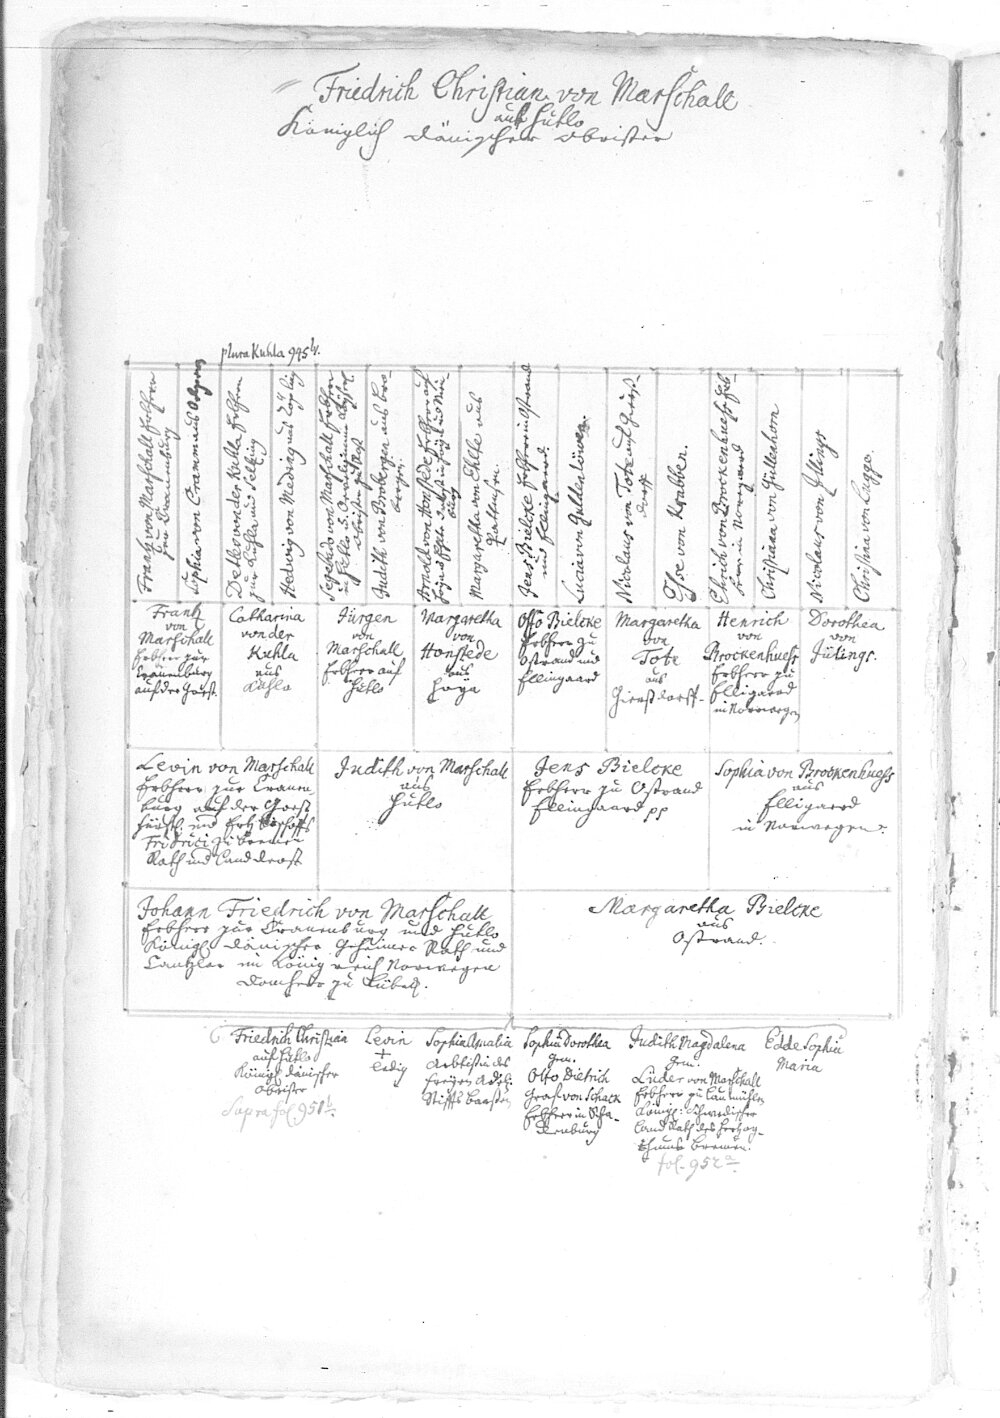 Friedrich Christian von Marschalk
auf Hutlo
Königlich Dänischer Obrister
plura Kuhla 945 b.
Frantz von Marschalk Erbherr
zur Cranenburg
Sophia von Cramm aus Odzen
Detlev von der Kuhla Erbherr
zu Kuhla und
Hedwig von Meding aus
Segebade von Marschalk Erbherr
zu Hutlo
Obrister
Judith von Brobergen aus Bro-
bergen.
Arnold von Honstede Erbherr auf
Margaretha von Ehle aus
Jens Bielcke Erbherr in Ostraad
und Ellingaard
Lucia von Guldenlöwen.
Nicolaus von Tote auf Gierst-
dorff
Ilse von Krabben.
Ehrich von Brockenhuess Erb-
herr in Norwegen
Christiana von Güllenhorn
Nicolaus von Jllings
Christina von Lugge.
Frantz
von
Marschalk
Erbherr zur
Cranenburg
auf der Horst.
Catharina
von der
Kuhla
aus
Kuhla
Jürgen
von
Marschalk
Erbherr auf
Hutlo
Margaretha
von
Honstede
aus
Hoya
Otto Bielcke
Erbherr zu
Ostraad und
Ellingaard
Margaretha
von
Tote
aus
Gierstdorff.
Henrich
von
Brockenhuess
Erbherr zu
Elligaard
in Norwegen
Dorothea
von
Jülings.
Levin von Marschalk
Erbherr zur Cranen-
burg auf der Horst
Fürstl. und Ertz Bischoffs
Fridrici zu Bremen
Rath und Landdrost
Judith von Marschalk
aus
Hutlo
Jens Bielcke
Erbherr zu Ostraad
Ellingaard pp
Sophia von Brockenhuess
aus
Elligaard
in Norwegen.
Johann Friedrich von Marschalk
Erbherr zur Cranenburg und Hutlo
Königl. Dänischer Geheimer Rath und
Cantzler im Königreich Norwegen
Domherr zu Lübeck.
Margaretha Bielcke
aus
Ostraad.
Friedrich Christian
auf Hutlo
Königl. Dänischer
Obrister
Supra fol. 951 b.
Levin
+
ledig
Sophia Amalia
Aebtissin des
freyen Adel.
Stiffts Bassum
Sophia Dorothea
Gem.
Otto Dietrich
Graf von Schack
Erbherr in Scha-
ckenburg
Judith Magdalena
Gem.
Lüder von Marschalk
Erbherr zu Laumühlen
Königl. Schwedischer
Land Rath des Hertzog-
thums Bremen.
fol. 952 a.
Edde Sophia
Maria